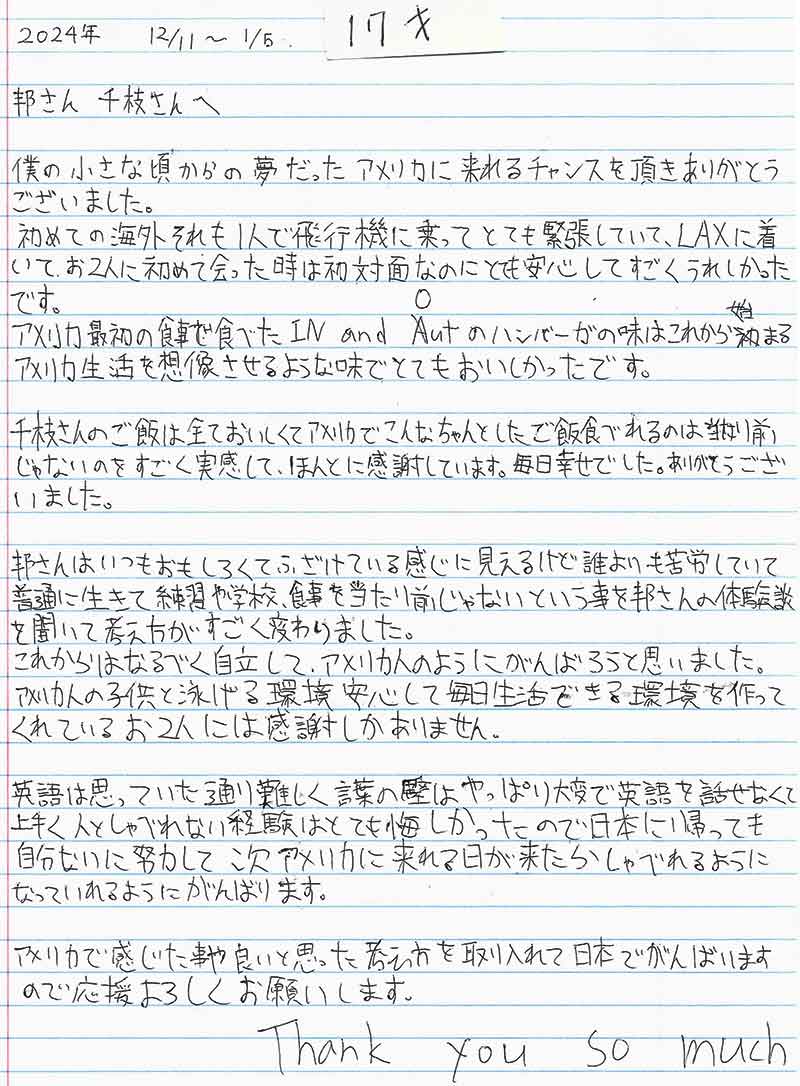 2024年 12/11〜1/5. 17才
邦さん 千枝さんへ
僕の小さな頃からの夢だったアメリカに来れるチャンスを頂きありがとう
ございました。
初めての海外それも1人で飛行機に乗ってとても緊張していて、LAXに着
いて、お2人に初めて会った時は初対面なのにとても安心してすごくうれしかった
です。
O
始
アメリカ最初の食事で食べたIN and Autのハンバーガの味はこれから初まる
アメリカ生活を想像させるような味でとてもおいしかったです。
千枝さんのご飯は全ておいしくてアメリカでこんなちゃんとしたご飯食べれるのは当たり前
じゃないのをすごく実感して、ほんとに感謝しています。毎日幸せでした。ありがとうござ
いました。
邦さんはいつもおもしろくてふざけている感じに見えるけど誰よりも苦労していて
普通に生きて練習や学校、食事を当たり前じゃないという事を邦さんの体験談
を聞いて考え方がすごく変わりました。
これからはなるべく自立して、アメリカ人のようにがんばろうと思いました。
アメリカ人の子供と泳げる環境 安心して毎日生活できる環境を作って
くれているお2人には感謝しかありません。
英語は思っていた通り難しく言葉の壁はやっぱり大変で英語を話せなくて
上手く人としゃべれない経験はとても悔しかったので日本に帰っても
自分なりに努力して次アメリカに来れる日が来たらしゃべれるように
なっていれるようにがんばります。
アメリカで感じた事や良いと思った考え方を取り入れて日本でがんばります
ので応援よろしくお願いします。
Thank you so much